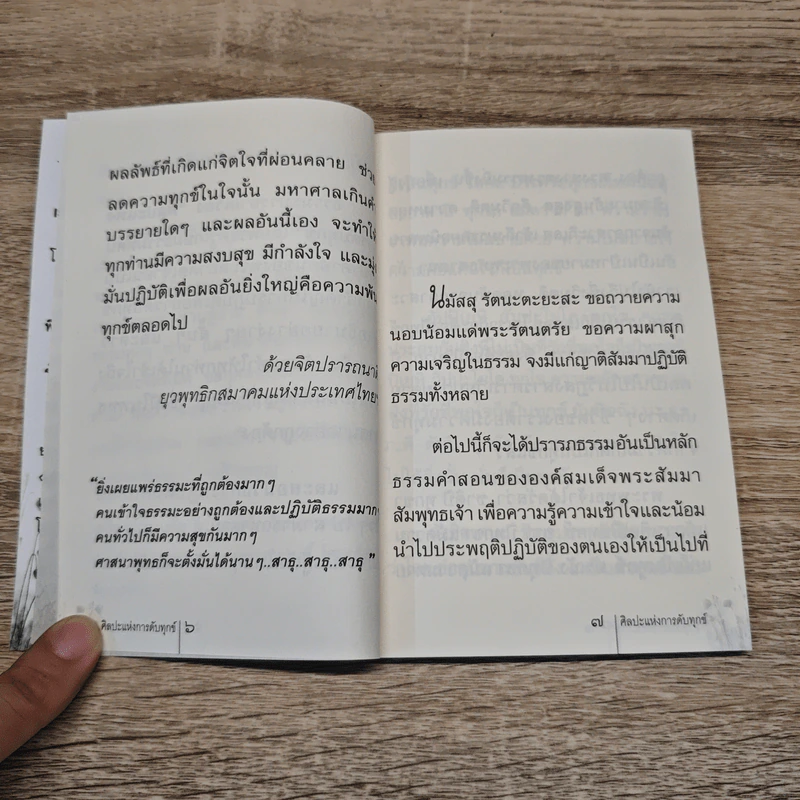 ผลลัพธ์ที่เกิดแก่จิตใจที่ผ่อนคลาย
ลดความทุกข์ในใจนั้น มหาศาลเกินคำ
บรรยายใดๆ และผลอันนี้เอง จะทำให้
ทุกท่านมีความสงบสุข มีกำลังใจ และมุ่ง
มั่นปฏิบัติเพื่อผลอันยิ่งใหญ่คือความพ้น
ทุกข์ตลอดไป
ด้วยจิตปรารถนาดี
ยุวพุทธิกสมาคมแห่งประเทศไทยฯ
“ยิ่งเผยแพร่ธรรมะที่ถูกต้องมากๆ
คนเข้าใจธรรมะอย่างถูกต้องและปฏิบัติธรรมมากๆ
คนทั่วไปก็มีความสุขกันมากๆ
ศาสนาพุทธก็จะตั้งมั่นได้นานๆ..สาธุ..สาธุ..สาธุ ”
ศิลปะแห่งการดับทุกข์ ๖
นมัสสุ รัตนะตะยะสะ ขอถวายความ
นอบน้อมแด่พระรัตนตรัย ขอความผาสุก
ความเจริญในธรรม จงมีแก่ญาติสัมมาปฏิบัติ
ธรรมทั้งหลาย
ต่อไปนี้ก็จะได้ปรารภธรรมอันเป็นหลัก
ธรรมคำสอนขององค์สมเด็จพระสัมมา
สัมพุทธเจ้า เพื่อความรู้ความเข้าใจและน้อม
นำไปประพฤติปฏิบัติของตนเองให้เป็นไปที่
๗ ศิลปะแห่งการดับทุกข์